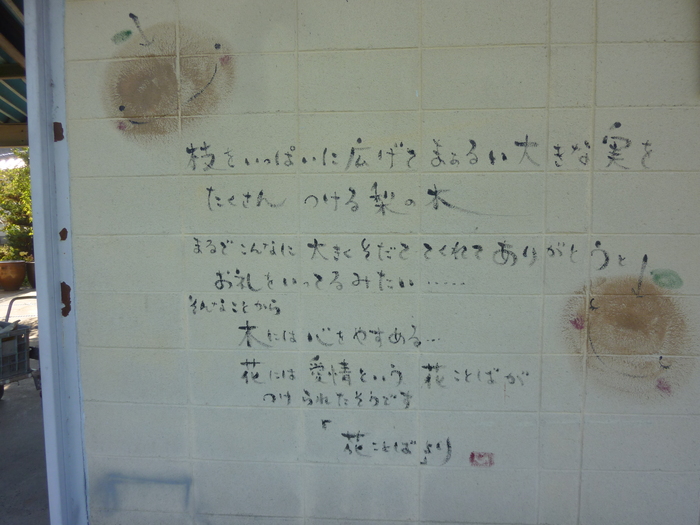 枝をいっぱいに広げてまぁるい大きな実を
たくさん つける梨の木
まるでこんなに大きくそだててくれてありがとうと
お礼をいってるみたい……
そんなことから
木には心をやすめる…
花には愛情という花ことばが
つけられたそうです
「花ことば」より